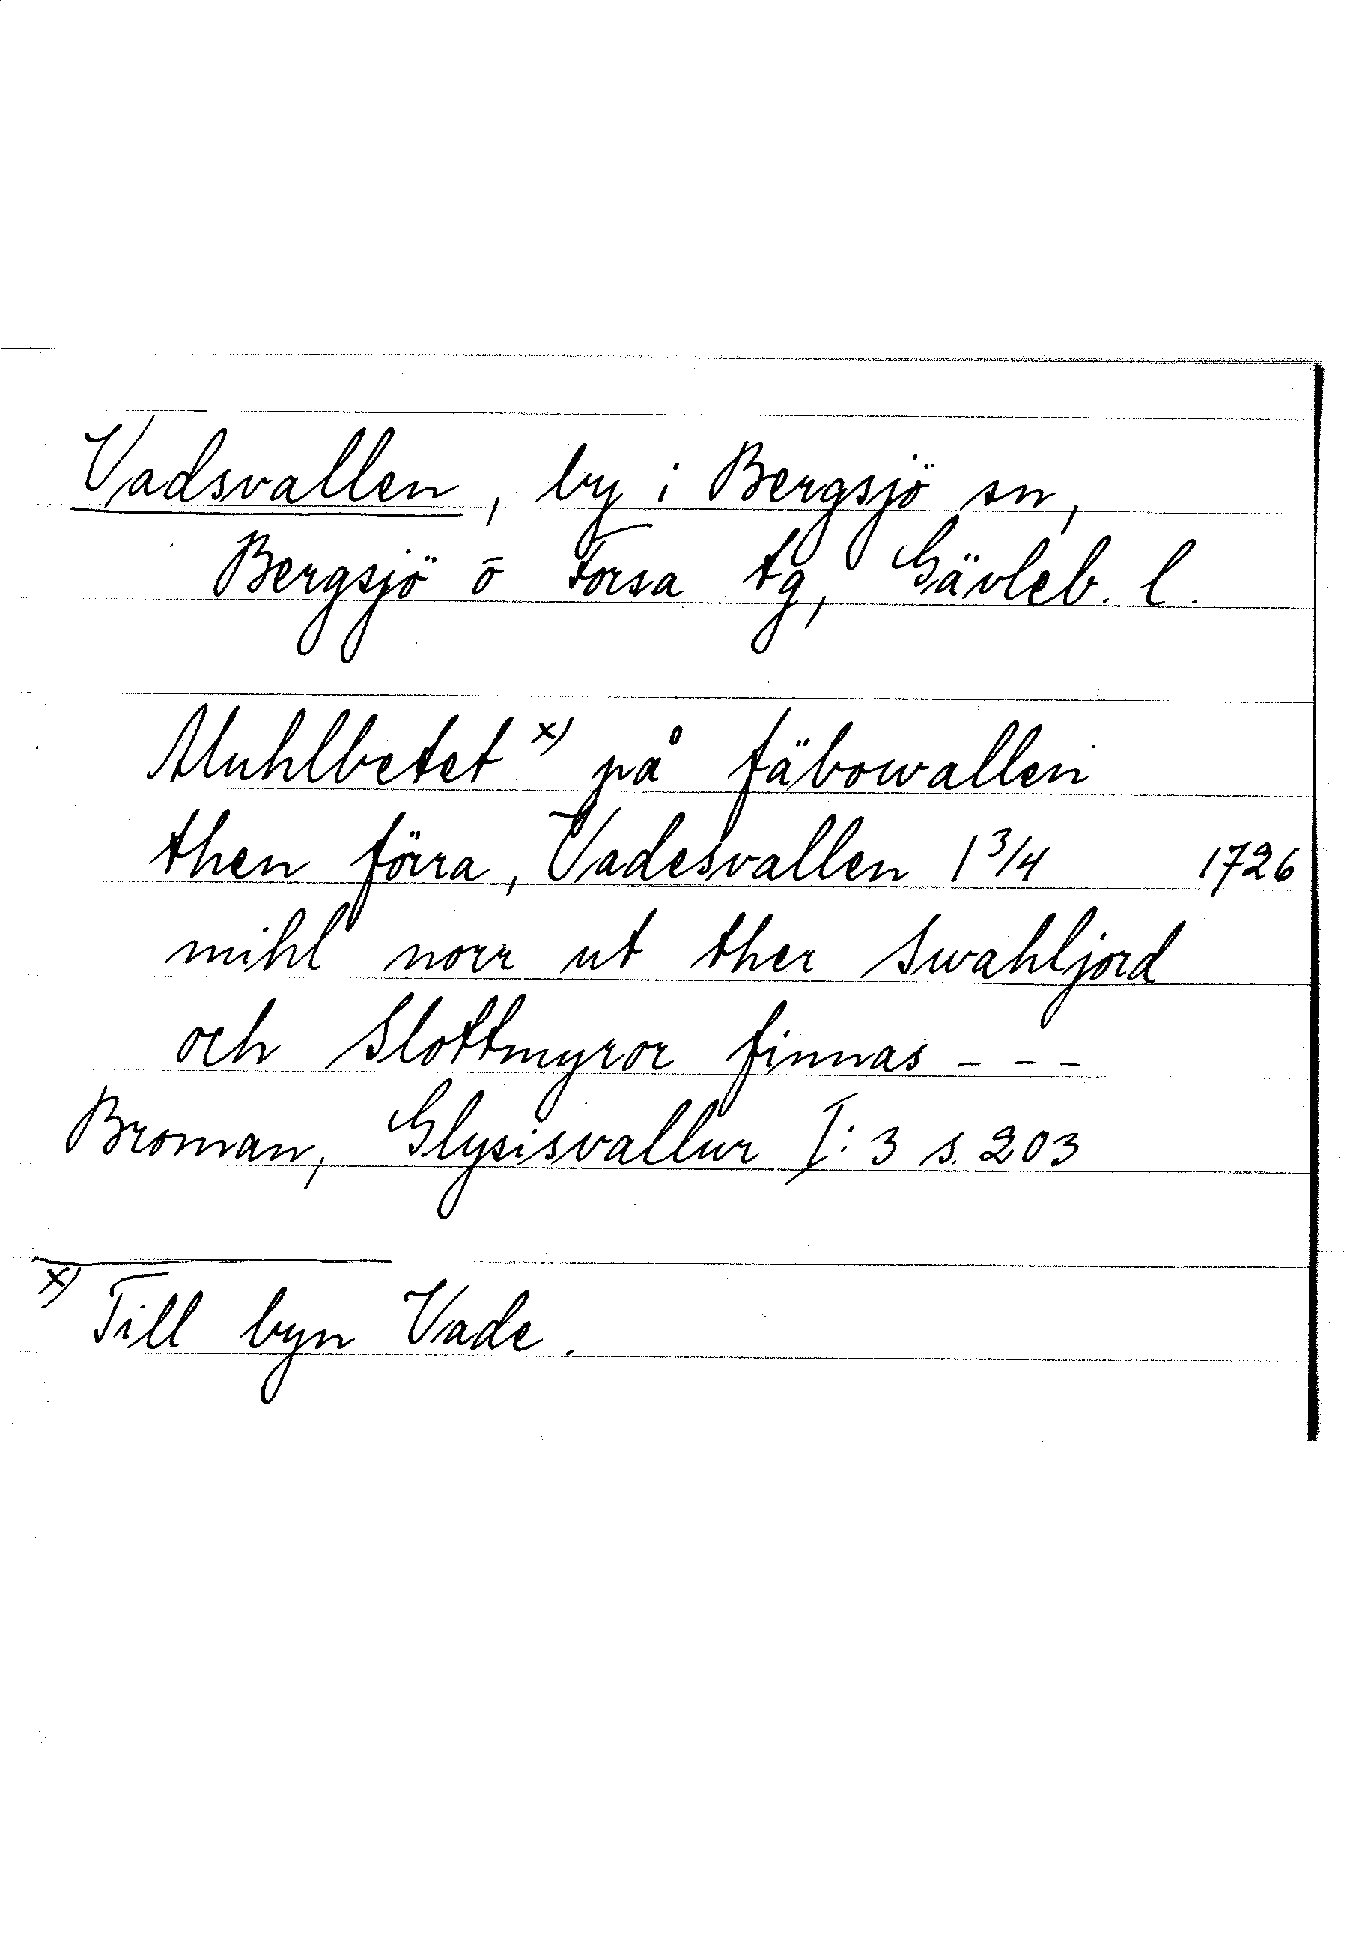 Vadsvallen, by i Bergsjö sn,
Bergsjö o Forsa tg, Gävleb. l.
Muhlbetet x) på fäbowallen
then förra, Vadesvallen 1 3/4 1726
mihl norr ut ther Swahljord
och Slottmyror finnas - - -
Broman, Glysisvallur I:3 s. 203
x) Till byn Vade.